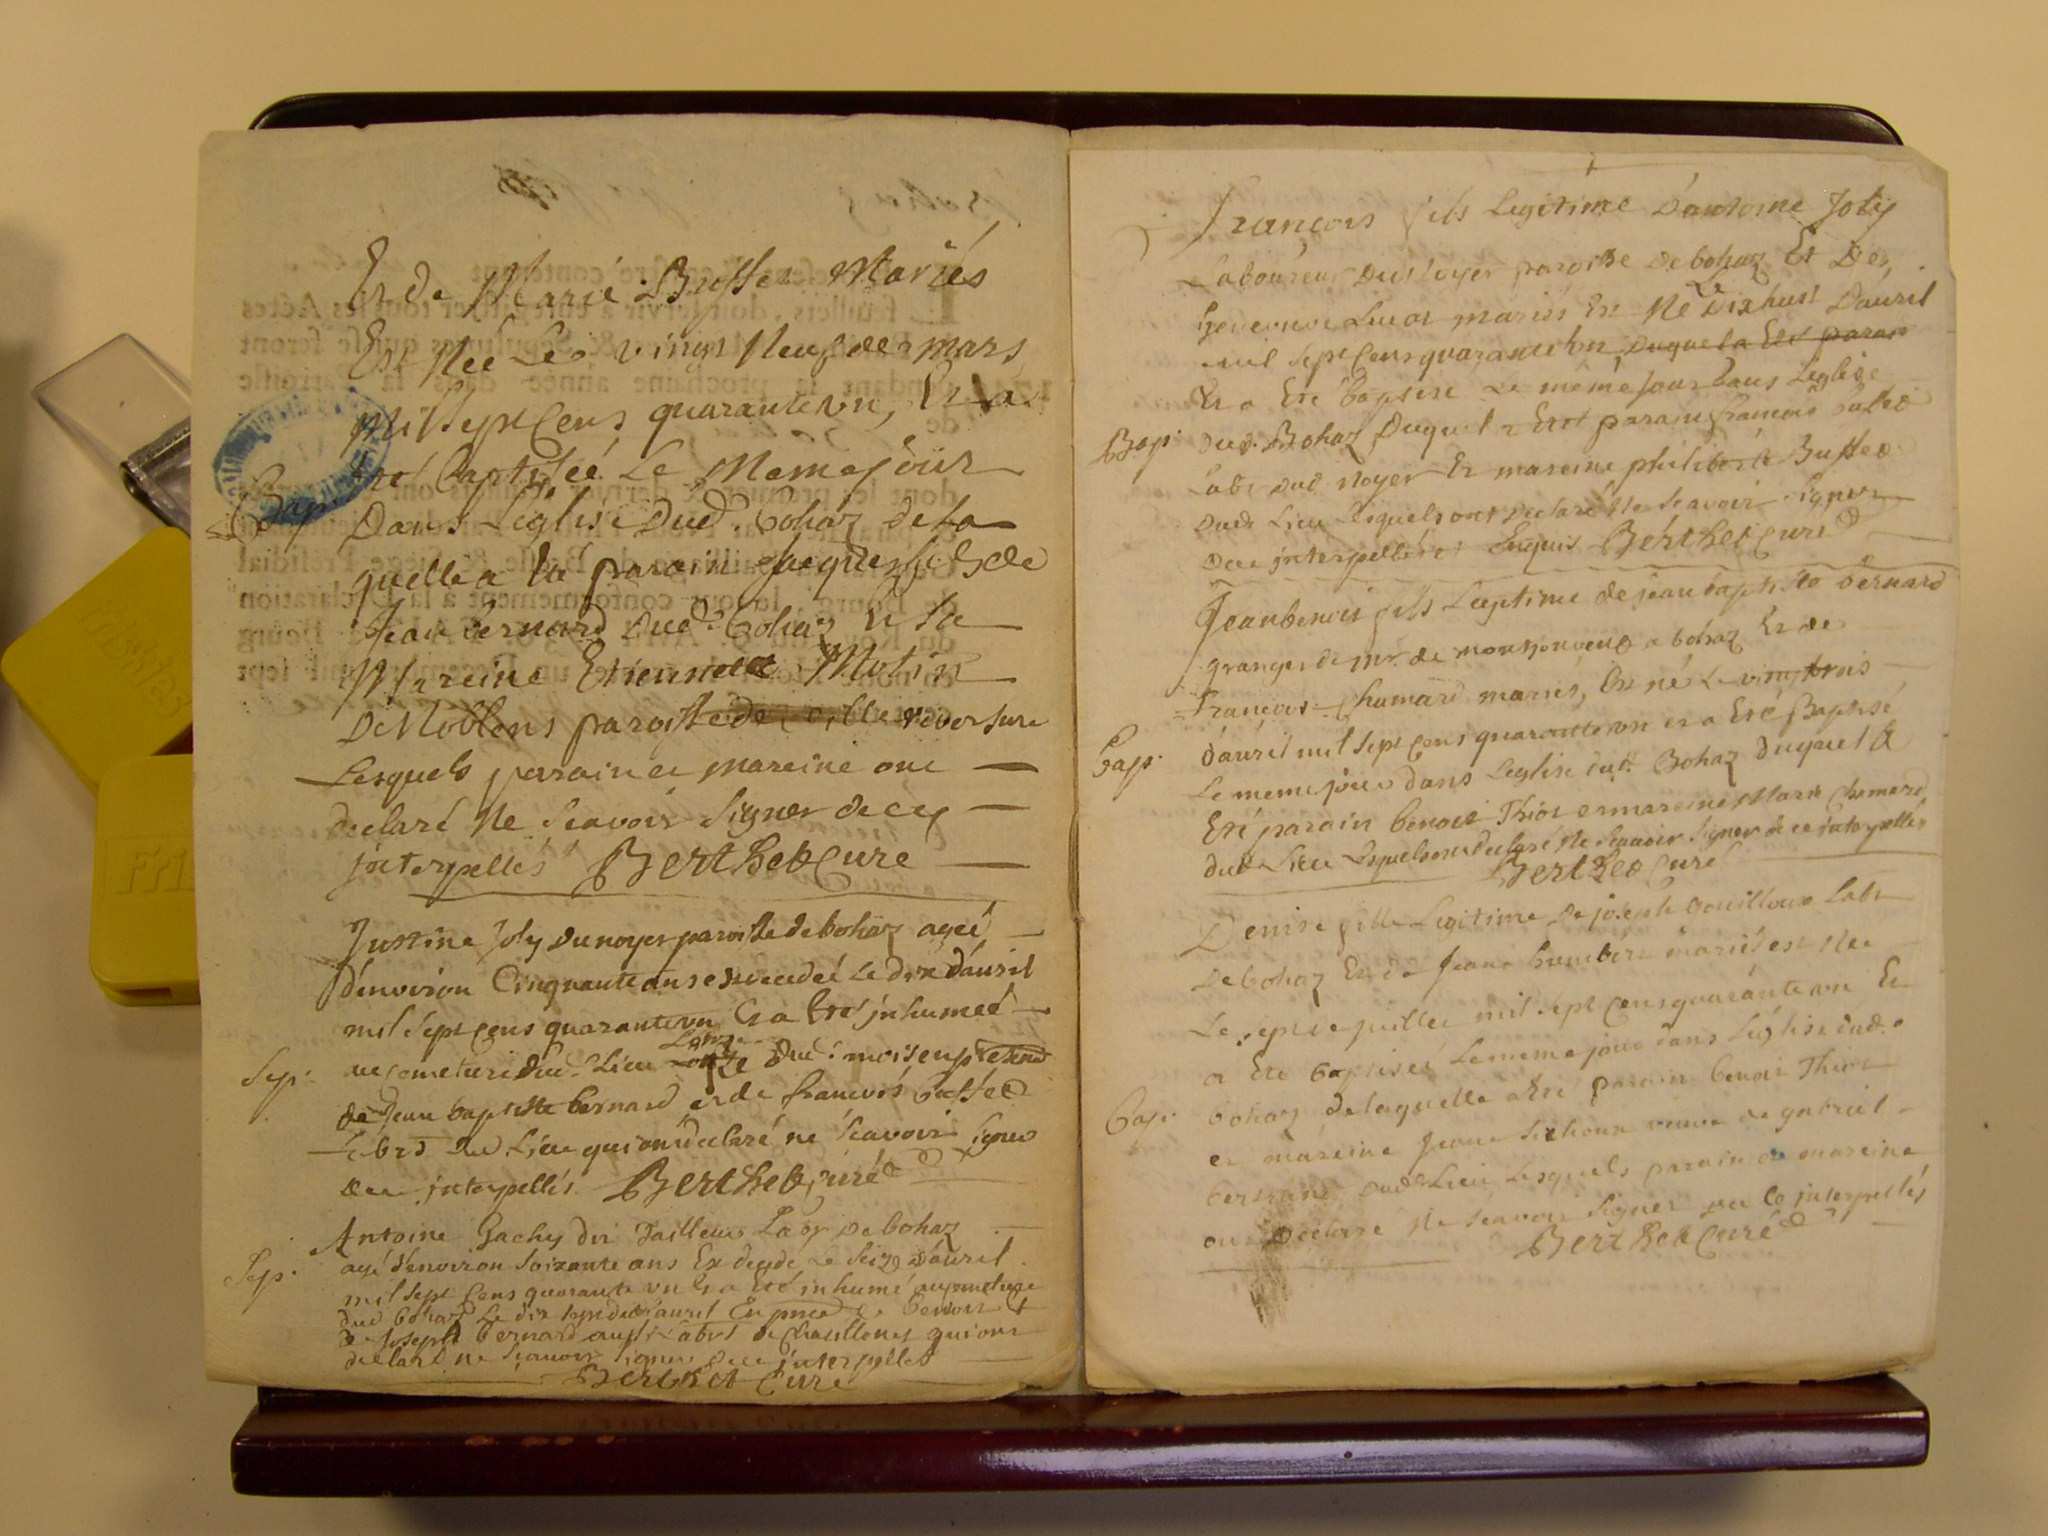 Et de Marie Buffet Mariés
Est Née Le vingt Neuf de mars
mil sept Cens quarante un, Et a
été Baptisée Le Meme jour
Bap.
Dans L'église Dud. Bohaz de la
quelle a été parain Jacques fils de
Jean bernard Dud. Bohaz Et la
Mareine Etiennette Molin
De Noblens paroisse de ville reversure
Lesquels parain et mareine ont
declaré Ne Scavoir Signer de ce
interpellés Berthet Curé
Justine Joly du noyer paroisse de bohaz ageé
d'environ Cinquante ans est decedeé Le dix d'auril
mil Sept Cens quarante un Et a Eté inhumeé
Sep.
au cemetiere Dud. Lieu Lonze dud. mois en presence
de Jean baptiste bernard et de francois buffet
Labrs dud Lieu qui ont declaré ne Scavoir Signer
de ce interpellés. Berthet curé
Antoine Gachy dit Tailleur Labr De bohaz
Sep.
agé d'environ Soixante ans Est decede Le Seize d'auril
mil Sept Cens quarante un Et a Eté inhumé au cemetiere
dud bohaz Le dix Sept dud. auril En pnce de benoit
& Joseph bernard aussi Labrs de qui ont
declaré ne Scavoir Signer de ce interpellés
Berthet Curé
François fils Legitime D'antoine Joly
Laboureur Du Noyer paroisse de bohaz Et De
Genevieve mariés Est Né Le Dixhuit D'auril
mil Sept Cens quarante Un duquel a Eté parain
Et a Eté Baptisé Le même Jour Dans L'eglise
Bap.
Dud. Bohaz Duquel a Eté parain francois buffet
Labr Dud Noyer Et mareine philiberte Buffet
Dud Lieu Lesquels ont declaré Ne Scavoir Signer
De ce interpellés et Enquis Berthet Curé
Jean benoit fils Legitime de jean baptiste bernard
granger de Mr. de a bohaz Et de
Françoise Chumard mariés, Est né Le vingt trois
d'auril mil Sept Cens quarante un et a Eté Baptisé
Bap.
Le meme jour dans L'eglise dud. Bohaz duquel a
Eté parain benoit Thior et mareine Marie Chumard
dud. Lieu Lesquels ont declaré Ne Scavoir Signer de ce interpellés
Berthet Curé
Denise fille Legitime De joseph Labr
De bohaz Et de Jeane humbert mariés est Née
Le Sept de juillet mil Sept Cens quarante un Et
a Eté Baptiseé Le meme jour dans L'eglise dud.
Bap.
bohaz de laquelle a Eté parain benoit Thior
et mareine Jeane veuve de gabriel
bertrand dud Lieu, Lesquels parain et mareine
ont Declaré Ne Scavoir Signer de ce interpellés
Berthet Curé